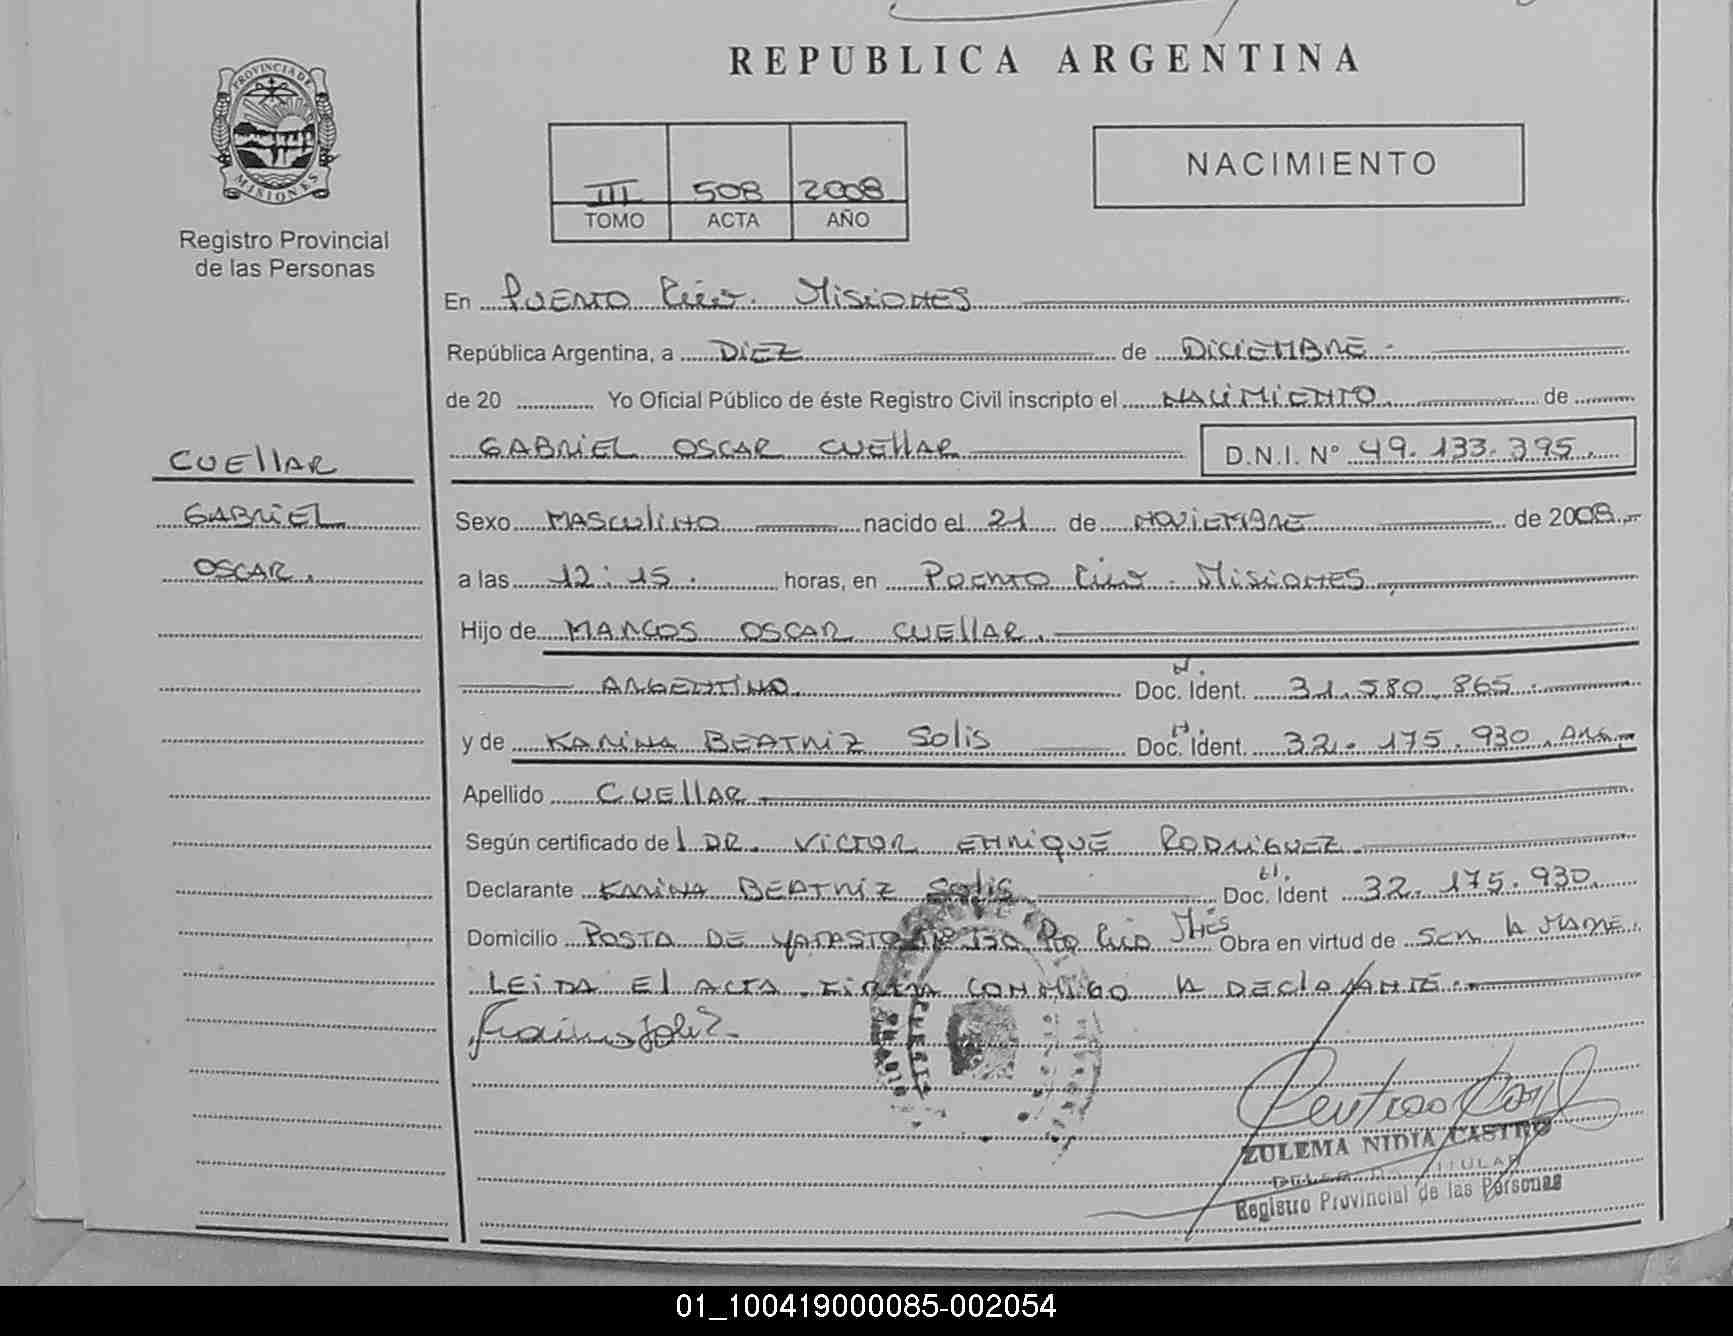 REPUBLICA ARGENTINA
PROVINCIA DE
MISIONES
Registro Provincial
de las Personas
III 508 2008
TOMO ACTA AÑO
NACIMIENTO
En PUERTO Rico. MISIONES
República Argentina, a DIEZ de DICIEMBRE.-
de 20 Yo Oficial Público de éste Registro Civil inscripto el NACIMIENTO de
GABRIEL OSCAR CUEllAR D.N.I. N° 49.133.395.
CUEllAR
GABRIEL
OSCAR.
Sexo MASCULINO nacido el 21 de NOVIEMBRE de 2008.-
a las 12:15. horas, en PUERTO Rico. MISIONES
Hijo de MARCOS OSCAR CUEllAR.
ARGENTINO Doc. N. Ident. 31.580.865.
y de KARINA BEATRIZ SOLIS Doc. N. Ident. 32.175.930. ARG.
Apellido CUEllAR
Según certificado del DR. VICTOR ENRIQUE RODRIGUEZ
Declarante KARINA BEATRIZ SOLIS Doc. N. Ident 32.175.930.
Domicilio POSTA DE YATASTO Pto Rico Mnes Obra en virtud de SER LA MADRE.
LEIDA El ACTA, FIRMA CONMIGO LA DECLARANTE.-
ZULEMA NIDIA CASTRO
DELEGADA TITULAR
Registro Provincial de las Personas
01_100419000085-002054